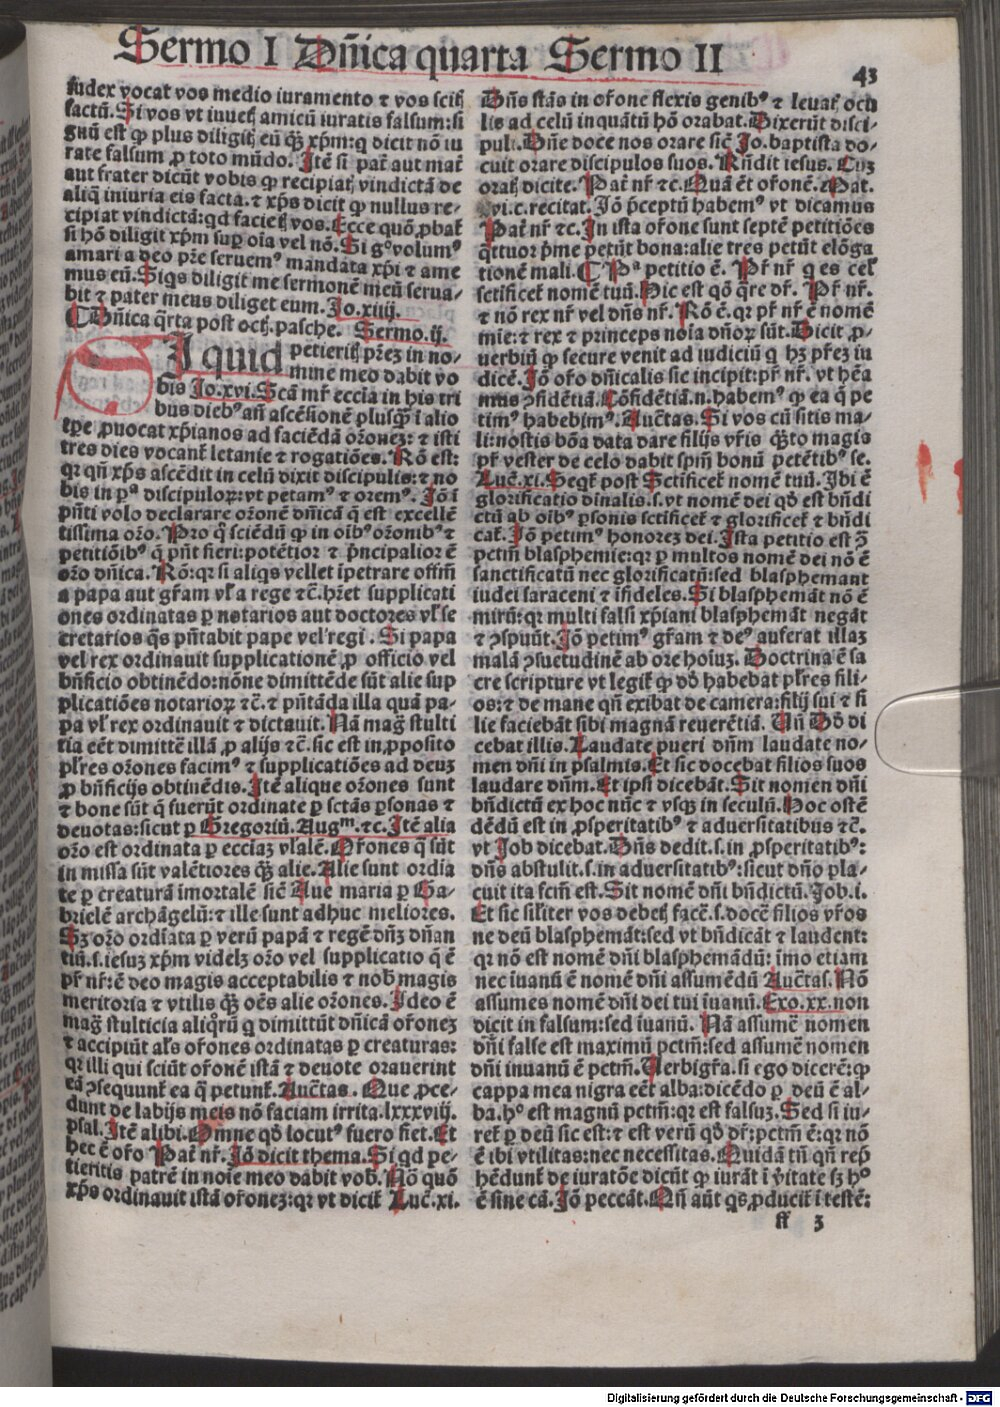 Sermo I Dn̄ica quarta Sermo II
43
iudex vocat vos medio iuramento ⁊ vos scitꝭ
factū. Si vos vt iuuetꝭ amicū iuratis falsum: si
gnū est ꝙ plus diligitꝭ eū q̄ꝫ xp̄m: q dicit nō iu
rate falsum ꝓ toto mūdo. Itē si pat̄ aut mat̄
aut frater dicūt vobis ꝙ recipiatꝭ vindictā de
aliq̄ iniuria eis facta. ⁊ xp̄s dicit ꝙ nullus re-
cipiat vindictā: qd facietꝭ vos. Ecce quō ꝓbat̄
si hō diligit xp̄m sup̄ oīa vel nō. Si gͦ volumꝰ
amari a deo pr̄e seruemꝰ mandata xp̄i ⁊ ame
mus eū. Siqs diligit me sermonē meū serua-
bit ⁊ pater meus diliget eum. Jo.xiiij.
Dn̄ica q̄rta post octꝭ. pasche. Sermo.ij.
SI quid petieritꝭ pr̄eꝫ in no-
mine meo dabit vo
bis Jo.xvi. Scā mr̄ eccīa in his tri
bus diebꝰ an̄ ascēsionē plusq̄ꝫ i alio
tp̄e ꝓuocat xp̄ianos ad faciēdā or̄onez: ⁊ isti
tres dies vocant̄ letanie ⁊ rogatiōes. Rō est:
qꝛ qn̄ xp̄s ascēdit in celū dixit discipulis: ⁊ no
bis in pͣ discipuloꝝ: vt petamꝰ ⁊ oremꝰ. Jō ī
pn̄ti volo declarare or̄onē dn̄icā q̄ est excellē
tissima or̄o. Pro q̄ sciēdū ꝙ in oībꝰ or̄onibꝰ ⁊
petitiōibꝰ q̄ pn̄t fieri: potētior ⁊ p̄ncipalior ē
or̄o dn̄ica. Rō: qꝛ si aliqs vellet īpetrare offm̄
a papa aut gr̄am vl̄ a rege ⁊c̄. hr̄et supplicati
ones ordinatas ꝑ notarios aut doctores vl̄ se
cretarios q̄s pn̄tabit pape vel regi. Si papa
vel rex ordinauit supplicationē ꝓ officio vel
bn̄ficio obtinēdo: nōne dimittēde sūt alie sup
plicatiōes notarioꝝ ⁊c̄. ⁊ pn̄tāda illa quā pa-
pa vl̄ rex ordinauit ⁊ dictauit. Nā maḡ stulti
tia eēt dimittē illā ꝓ alijs ⁊c̄. sic est in ꝓposito
pl̄res or̄ones facimꝰ ⁊ supplicatiōes ad deuꝫ
ꝓ bn̄ficijs obtinēdis. Itē alique or̄ones sunt
⁊ bone sūt q̄ fuerūt ordinate ꝑ sctās ꝑsonas ⁊
deuotas: sicut ꝑ Gregoriū. Augᵐ. ⁊c. Itē alia
or̄o est ordinata ꝑ ecciaꝫ vl̄salē. Or̄ones q̄ sūt
in missa sūt valētiores q̄ꝫ alie. Alie sunt ordia
te ꝑ creaturā imortalē sicē Aue maria ꝑ Ga-
brielē archāgelū: ⁊ ille sunt adhuc meliores.
Sꝫ or̄o ordīata ꝑ verū papā ⁊ regē dn̄ꝫ dn̄an
tiū. s. iesuꝫ xp̄m videlꝫ or̄o vel supplicatio q̄ ē
pr̄ nr̄: ē deo magis acceptabilis ⁊ nobꝭ magis
meritoria ⁊ vtilis q̄ꝫ oēs alie or̄ones. Ideo ē
maḡ stulticia aliq̄rū q dimittūt dn̄icā or̄onez
⁊ accipiūt al̄s or̄ones ordinatas ꝑ creaturas:
qꝛ illi qui sciūt or̄onē istā ⁊ deuote orauerint
eā ↄsequunt̄ ea q̄ petunt̄. Auc̄tas. Que ꝓce-
dunt de labijs meis nō faciam irrita. lxxxviij.
psal. Itē alibi. Omne qd̄ locutꝰ fuero fiet. Et
hec ē or̄o Pat̄ nr̄. Jō dicit thema. Si qd pe-
tieritis patrē in noīe meo dabit vob. Nō quō
xp̄s ordinauit istā or̄onez: qꝛ vt dicit̄ Luc̄.xi.
Dn̄s stās in or̄one flexis genibꝰ ⁊ leuatꝭ ocu
lis ad celū inquātū hō orabat. Dixerūt disci-
puli. Dn̄e doce nos orare sic̄ Jo. baptista do-
cuit orare discipulos suos. Rn̄dit iesus. Cuꝫ
oratꝭ dicite. Pat̄ nr̄ ⁊c. Quā ēt or̄onē. Mat.
vi.c. recitat. Jō p̄ceptū habemꝰ vt dicamus
Pat̄ nr̄ ⁊c. In ista or̄one sunt septē petitiōes
q̄ttuor p̄me petūt bona: alie tres petūt elōga
tionē mali. Pͣ petitio ē. Pr̄ nr̄ q es cel̄
sctificet̄ nomē tuū. Hic est qō q̄re dr̄. Pr̄ nr̄.
⁊ nō rex nr̄ vel dn̄s nr̄. Rō ē. qꝛ pr̄ nr̄ ē nomē
mie: ⁊ rex ⁊ princeps noīa dn̄oꝝ sūt. Dicit ꝓ-
uerbiū ꝙ secure venit ad iudiciū q hꝫ pr̄eꝫ iu
dicē. Jō or̄o dn̄icalis sic incipit: pr̄ nr̄. vt hēa
mus ↄfidētiā. Cōfidētiā. n. habemꝰ ꝙ ea q̄ pe
timꝰ habebimꝰ. Auc̄tas. Si vos cū sitis ma-
li: nostis bōa data dare filijs vr̄is q̄ꝫto magis
pr̄ vester de celo dabit sp̄m bonū petētibꝰ se.
Luc̄.xi. Seqt̄ post Sctificet̄ nomē tuū. Ibi ē
glorificatio dinalis. s. vt nomē dei qd̄ est bn̄di
ctū ab oībꝰ ꝑsonis sctificet̄ ⁊ glorificet̄ ⁊ bn̄di
cat̄. Jō petimꝰ honorez dei. Ista petitio est ↄ̄
pctm̄ blasphemie: qꝛ ꝑ multos nomē dei nō ē
sanctificatū nec glorificatū: sed blasphemant
iudei saraceni ⁊ īfideles. Si blasphemāt nō ē
mirū: qꝛ multi falsi xp̄iani blasphemāt negāt
⁊ ↄspuūt. Jō petimꝰ gr̄am ⁊ deꝰ auferat illaꝫ
malā ↄsuetudinē ab ore hoīuꝫ. Doctrina ē sa
cre scripture vt legit̄ ꝙ dd̄ habebat pl̄res fili-
os: ⁊ de mane qn̄ exibat de camera: filij sui ⁊ fi
lie faciebāt sibi magnā reuerētiā. Un̄ Dd̄ di
cebat illis. Laudate pueri dn̄m laudate no-
men dn̄i in psalmis. Et sic docebat filios suos
laudare dn̄m. Et ipsi dicebāt. Sit nomen dn̄i
bn̄dictū ex hoc nūc ⁊ vsqꝫ in seculū. Hoc ostē
dēdū est in ꝓsperitatibꝰ ⁊ aduersitatibus ⁊c̄.
vt Job dicebat. Dn̄s dedit. s. in ꝓsperitatibꝰ:
dn̄s abstulit. s. in aduersitatibꝰ: sicut dn̄o pla-
cuit ita fcm̄ est. Sit nomē dn̄i bn̄dictū. Job.i.
Et sic sil̄iter vos debetꝭ facē. s. docē filios vr̄os
ne deū blasphemāt: sed vt bn̄dicāt ⁊ laudent:
qꝛ nō est nomē dn̄i blasphemādū: imo etiam
nec iuanū ē nomē dn̄i assumēdū Auc̄tas. Nō
assumes nomē dn̄i dei tui iuanū. Exo.xx. non
dicit in falsum: sed iuanū. Nā assumē nomen
dn̄i false est maximū pctm̄: sed assumē nomen
dn̄i inuanū ē pctm̄. Uerbigr̄a. si ego dicerē: ꝙ
cappa mea nigra eēt alba: dicēdo ꝑ deū ē al-
ba. hͦ est magnū pctm̄: qꝛ est falsuꝫ. Sed si iu-
ret̄ ꝑ deū sic est: ⁊ est verū qd̄ dr̄: pctm̄ ē: qꝛ nō
ē ibi vtilitas: nec necessitas. Quidā tn̄ qn̄ rep̄
hēdunt̄ de iuratōe dicūt ꝙ iurāt i v̄itate sꝫ hͦ
ē sine cā. Jō peccāt. Qn̄ aūt qs ꝓducit̄ i testē:
ff 3
Digitalisierung gefördert durch die Deutsche Forschungsgemeinschaft - DFG